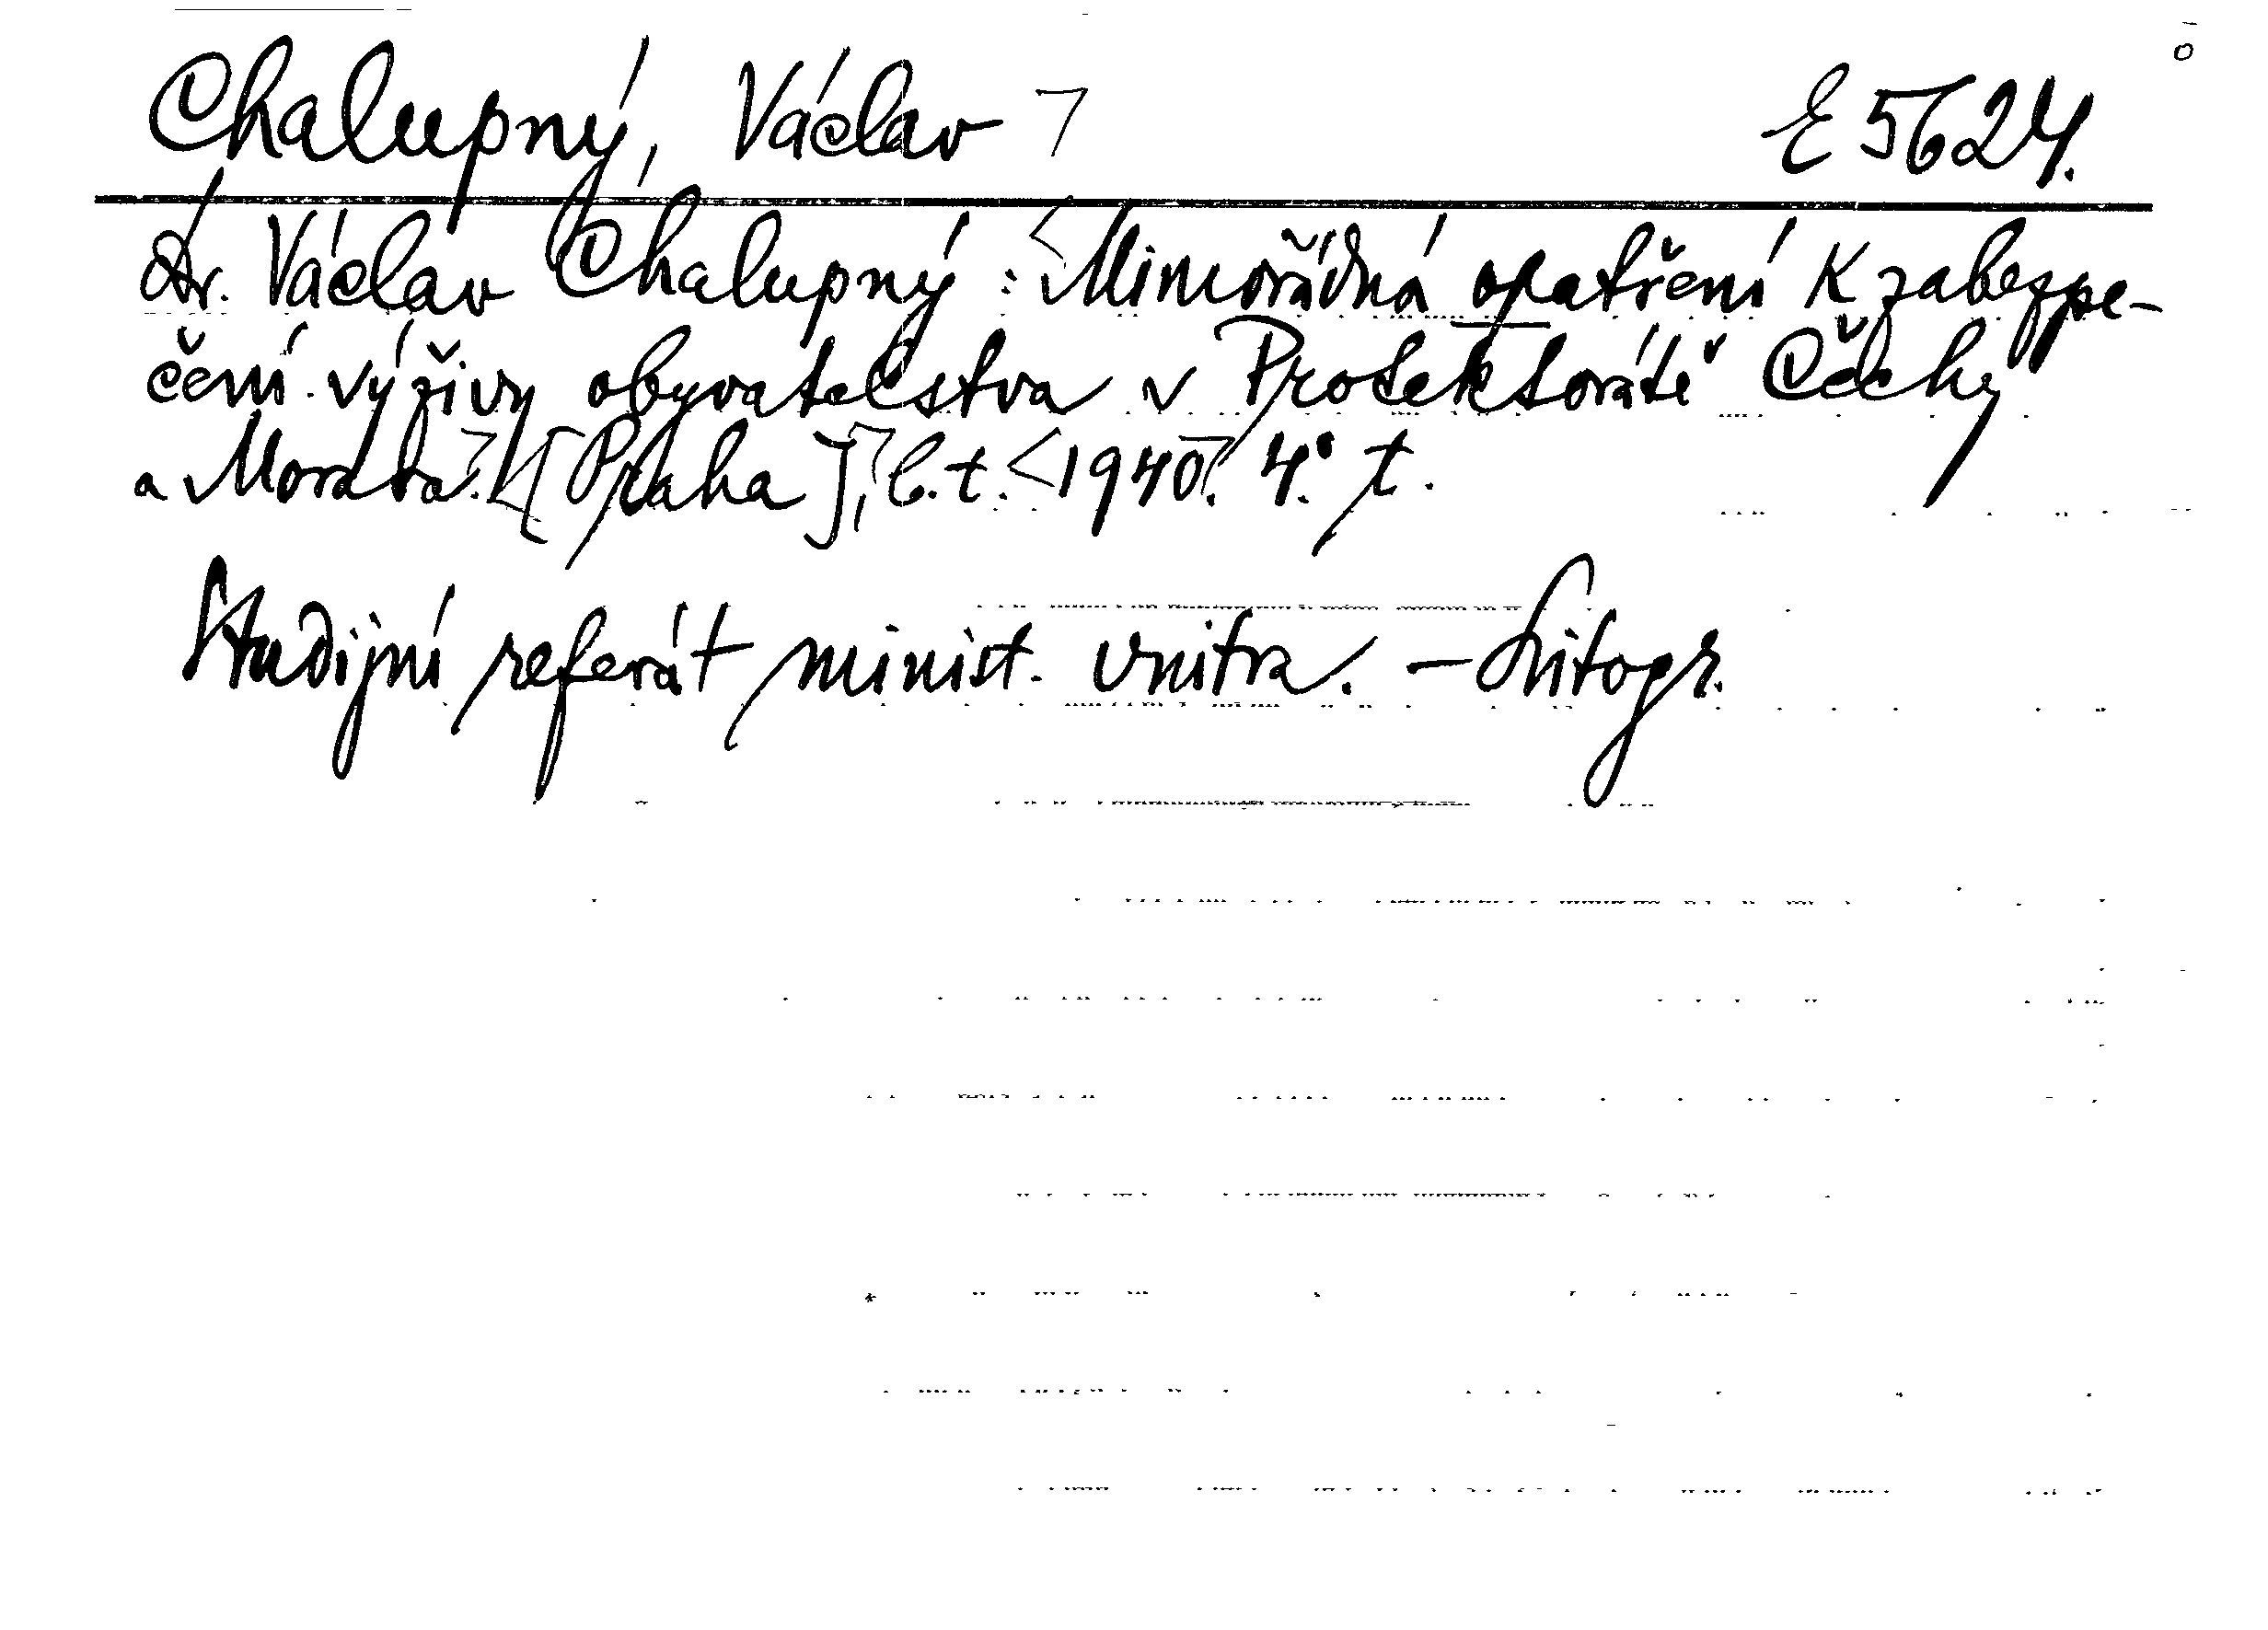 Chalupný, Václav E 5624.
Dr. Václav Chalupný: Mimořádná opatření k zabezpe-
čení výživy obyvatelstva v Protektorátě Čechy
a Morava. [Praha], b.t. 1940. 4°. t.
Studijní referát minist. vnitra. – Litogr.